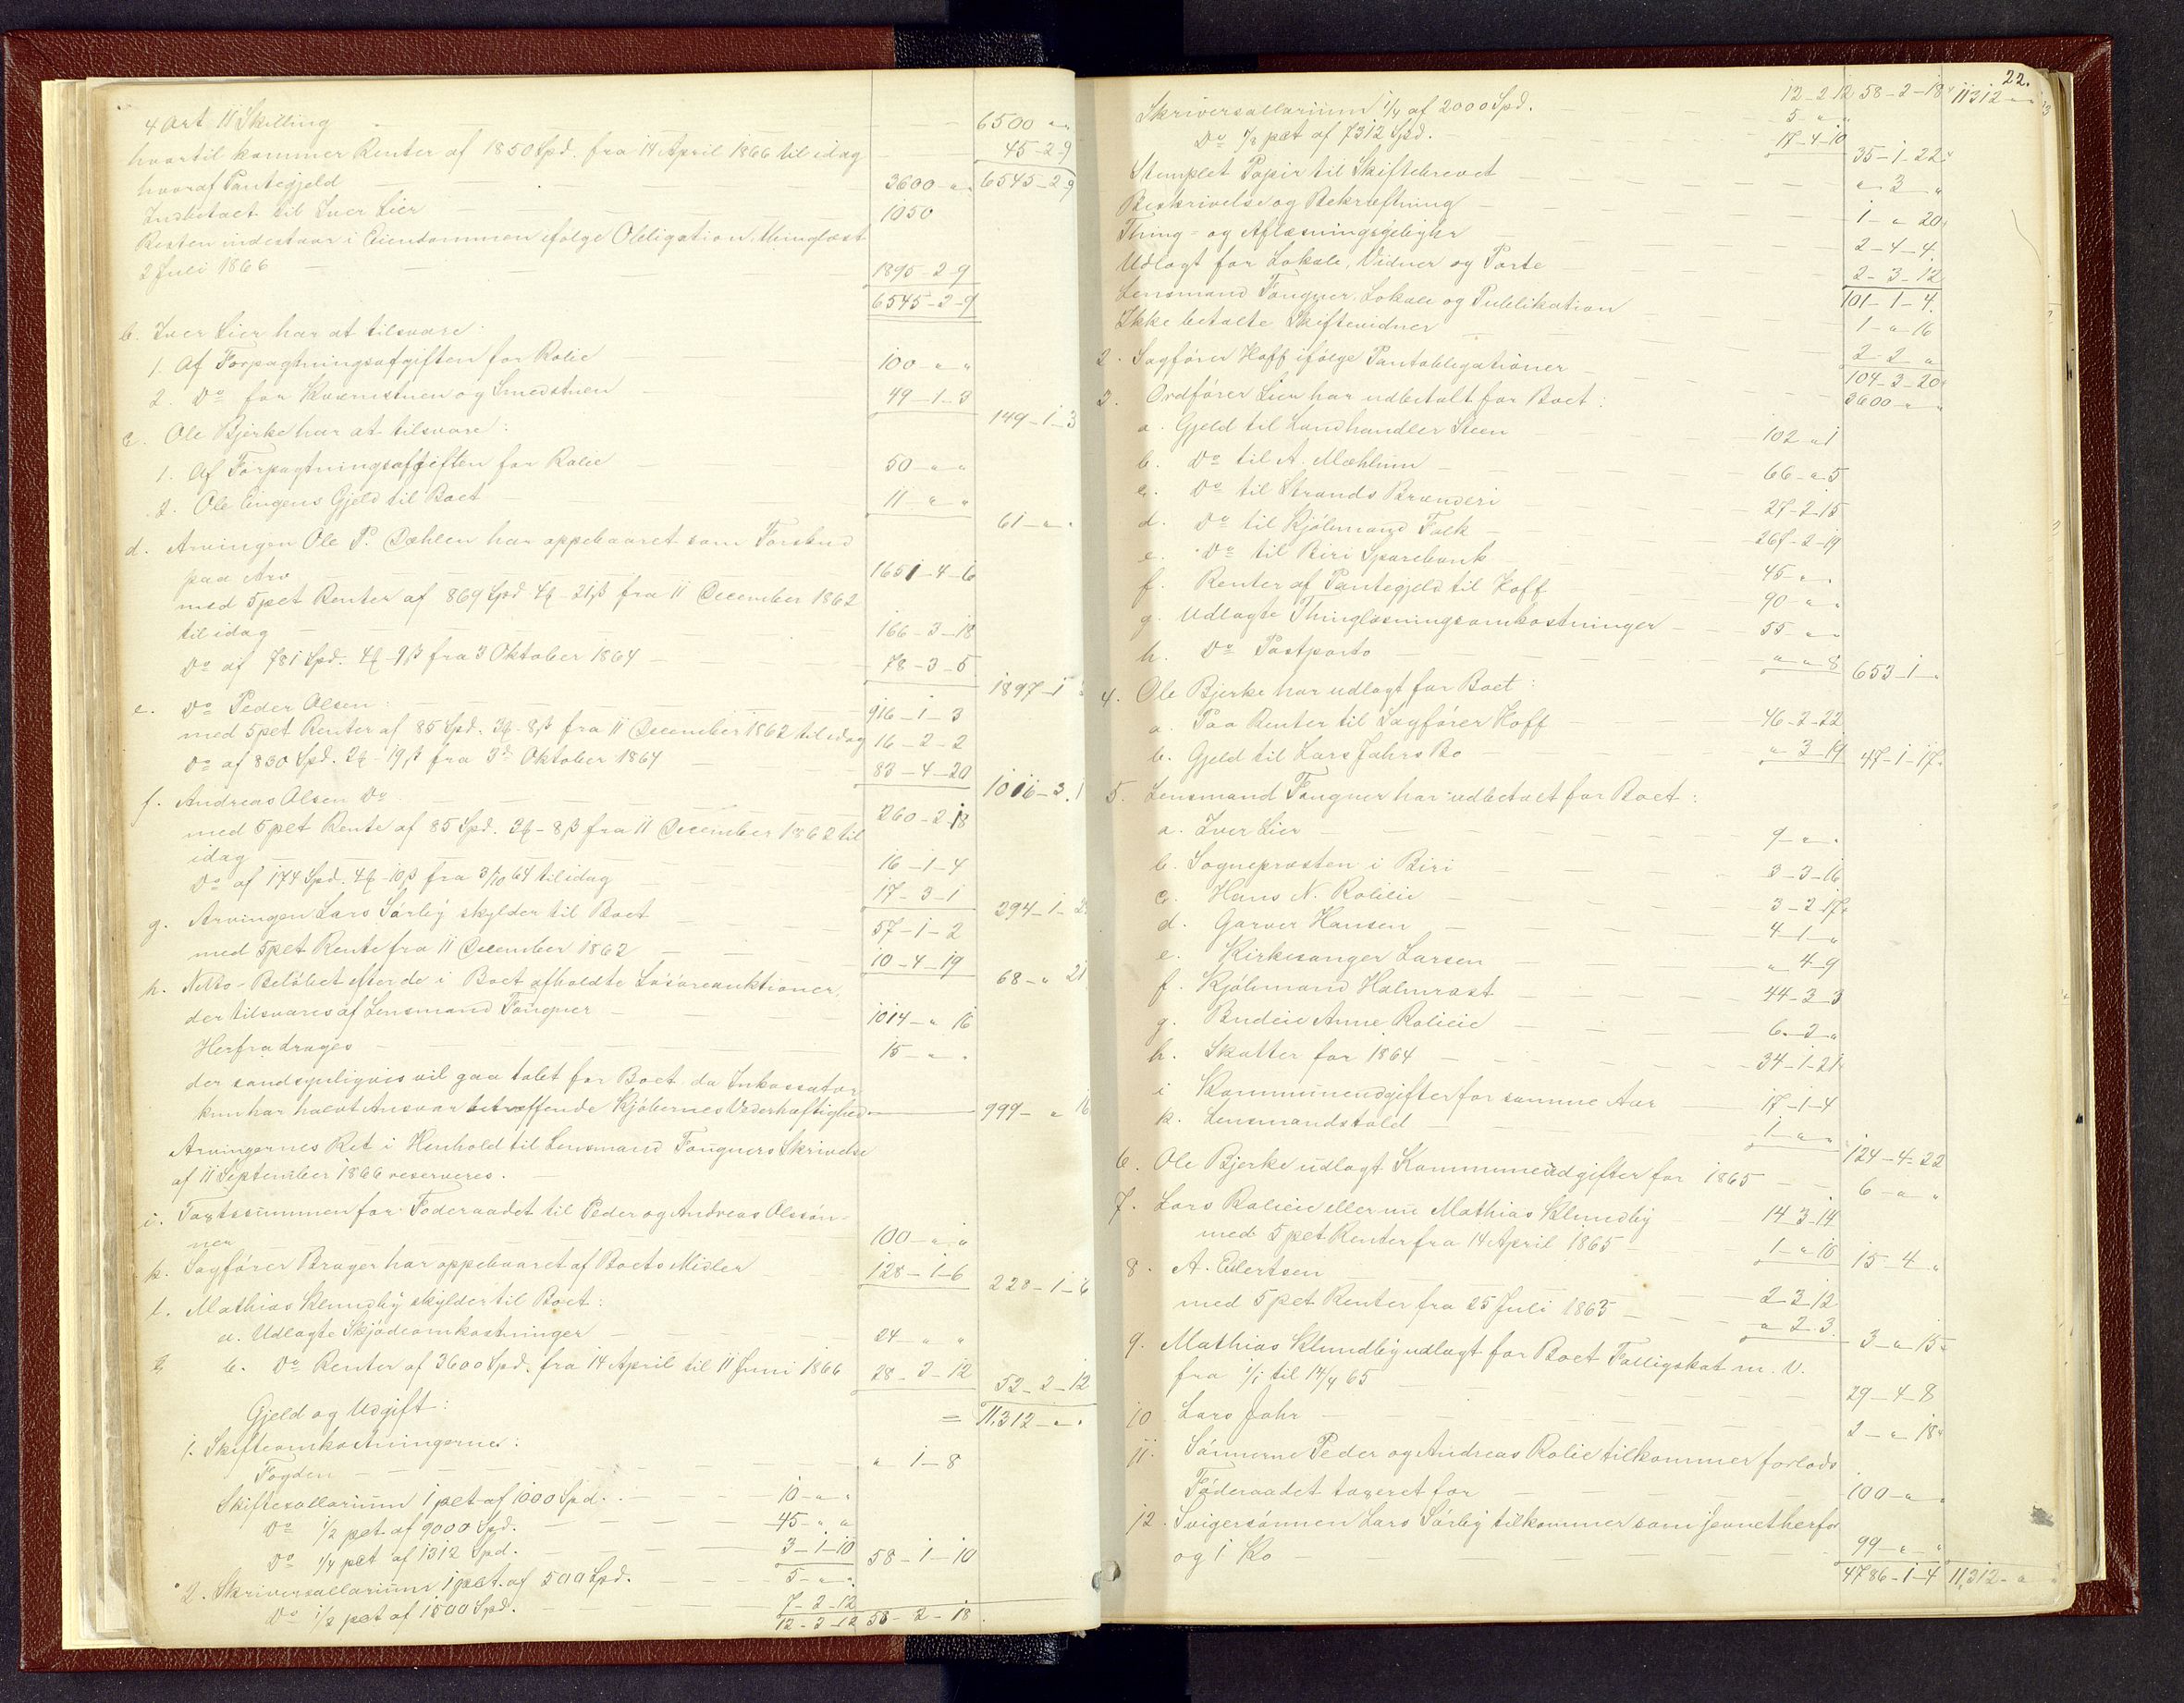 4 Ort 11 Skilling — — — 6500 " "
hvortil kommer Renter af 1850 Spd. fra 14 April 1866 til idag — 45-2-9
hvoraf Pantegjeld — — — 3600 - " - " 6545-2-9
Indbetalt til Iver Lier — — 1050
Resten indestaar i Eiendommen ifølge Obligation, thinglæst
2 Juli 1866 — — 1895-2-9
6545-2-9
b. Iver Lier har at tilsvare:
1. Af Forpagtningsafgiften for Rolie — 100 - " - "
2. Do for Kværnstuen og Smedstuen — 49-1-3
149-1-3
c. Ole Bjerke har at tilsvare:
1. Af Forpagtningsafgiften for Rolie — 50 - " - "
2. Ole Engens Gjeld til Boet — 11 - " - "
61 - " - "
d. Arvingen Ole P. Dæhlen har oppebaaret som Forskud
paa Arv — 1651-4-6
med 5 pct Renter af 869 Spd 4 - 21 β fra 11 December 1862
til idag — 166-3-18
Do af 781 Spd. 4 - 9 β fra 3 Oktober 1864 — 78-3-5
1897-1
e. Do Peder Olsen: — 916-1-3
med 5 pct Renter af 85 Spd. 3 - 8 β fra 11 December 1862 til idag 16-2-2
Do af 830 Spd. 2 - 19 β fra 3d Oktober 1864 — 83-4-20
1016-3-1
f. Andreas Olsen Do — 260-2-18
med 5 pct Rente af 85 Spd. 3 - 8 β fra 11 December 1862 til
idag — 16-1-4
Do af 174 Spd. 4 - 10 β fra 3/10 64 til idag — 17-3-1
294-1-
g. Arvingen Lars Sørlig skylder til Boet — 57-1-2
med 5 pct Rente fra 11 December 1862 — 10-4-19
68 - " 21
h. Netto-Beløbet efter de i Boet afholdte Løsøreauktioner,
der tilsvares af Lensmand Fougner — 1014 - " 16
Herfra drages — 15 - " - "
der sandsynligvis vil gaa tabt for Boet da Inkassator
kun har halvt Ansvar betræffende Kjøbernes Vederhæftighed — 999 - " 16
Arvingernes Ret i Henhold til Lensmand Fougners Skrivelse
af 11 September 1866 reserveres. —
i. Taxtsummen for Føderaadet til Peder og Andreas Olssøn-
ner — 100 - " - "
k. Sagfører Brager har oppebaaret af Boets Midler — 128-1-6
228-1-6
l. Mathias Klundby skylder til Boet:
a. Udlagte Skjødeomkostninger — 24 - " "
b. Do Renter af 3600 Spd. fra 14 April til 11 Juni 1866 28-2-12
52-2-12
Gjeld og Udgift: = 11,312 - " - "
1. Skifteomkostningerne:
Fogden — " 1-8
Skiftesallarium 1 pct af 1000 Spd. — 10 - " "
Do 1/2 pct af 9000 Spd. — 45 - " "
Do 1/4 pct af 1312 Spd. — 3-1-10 58-1-10
2. Skriversallarium 1 pct. af 500 Spd. — 5 - " "
Do 1/2 pct af 1500 Spd. — 7-2-12
12-2-12 58-2-18
22.
12-2-12 58-2-18 11312 - "
Skriversallarium 1/4 af 2000 Spd. — 5 " "
Do 1/8 pct af 7312 Spd. — 17-4-10
35-1-22
Stemplet Papir til Skiftebrevet — " 3 - "
Beskrivelse og Bekræftning — 1 - " 20
Thing- og Aflæsningsgebyhr — 2-4-4
Udlagt for Lokale, Vidner og Porto — 2-3-12
101-1-4
Lensmand Fougner, Lokale og Publikation — 1 - " 16
Ikke betalte Skiftevidner — 2-2 "
104-3-20
2. Sagfører Hoff ifølge Pantobligationer — 3600 - " "
3. Ordfører Lier har udbetalt for Boet:
a. Gjeld til Landhandler Steen — 102 " 1
b. Do til A. Mæhlum — 66 - " 5
c. Do til Strands Brænderi — 27-2-15
d. Do til Kjøbmand Falk — 267-2-19
e. Do til Biri Sparebank — 45 - " -
f. Renter af Pantegjeld til Hoff — 90 - " "
g. Udlagte Thinglæsningsomkostninger — 55 - " -
h. Do Postporto — " " 8
653-1-"
4. Ole Bjerke har udlagt for Boet:
a. Paa Renter til Sagfører Hoff — 46-2-22
b. Gjeld til Lars Jahrs Bo — " 3-19
47-1-17
5. Lensmand Fougner har udbetalt for Boet:
a. Iver Lier — 9 - " - "
b. Sognepræsten i Biri — 3-3-16
c. Hans N. Rolieie — 3-2-17
d. Garver Hansen — 4-1-"
e. Kirkesanger Larsen — " 4-9
f. Kjøbmand Halmrast — 44-3-3
g. Budeie Anne Rolieie — 6-3-"
h. Skatter for 1864 — 34-1-21
i Kommuneudgifter for samme Aar — 17-1-4
k. Lensmandstold — 1 - " "
124-4-22
6. Ole Bjerke udlagt Kommuneudgifter for 1865 — 6 - " "
7. Lars Rolieie eller nu Mathias Klundby — 14-3-14
med 5 pct Renter fra 14 April 1865 — 1 - " 10
15-4-"
8. A. Evertsen — 2-3-12
med 5 pct Renter fra 25 Juli 1863 — " 2-3
3 - " 15
9. Mathias Klundby udlagt for Boet Fattigskat m. V.
fra 1/1 til 14/4 65 — 29-4-8
10 Lars Jahr — 2 - " 18
11. Sønnerne Peder og Andreas Rolie tilkommer forlods
Føderaadet taxeret for — 100 - " "
12. Svigersønnen Lars Sørlig tilkommer som Jevnet herfor
og 1 Ko — 99 - " "
4786-1-4 11,312 - "